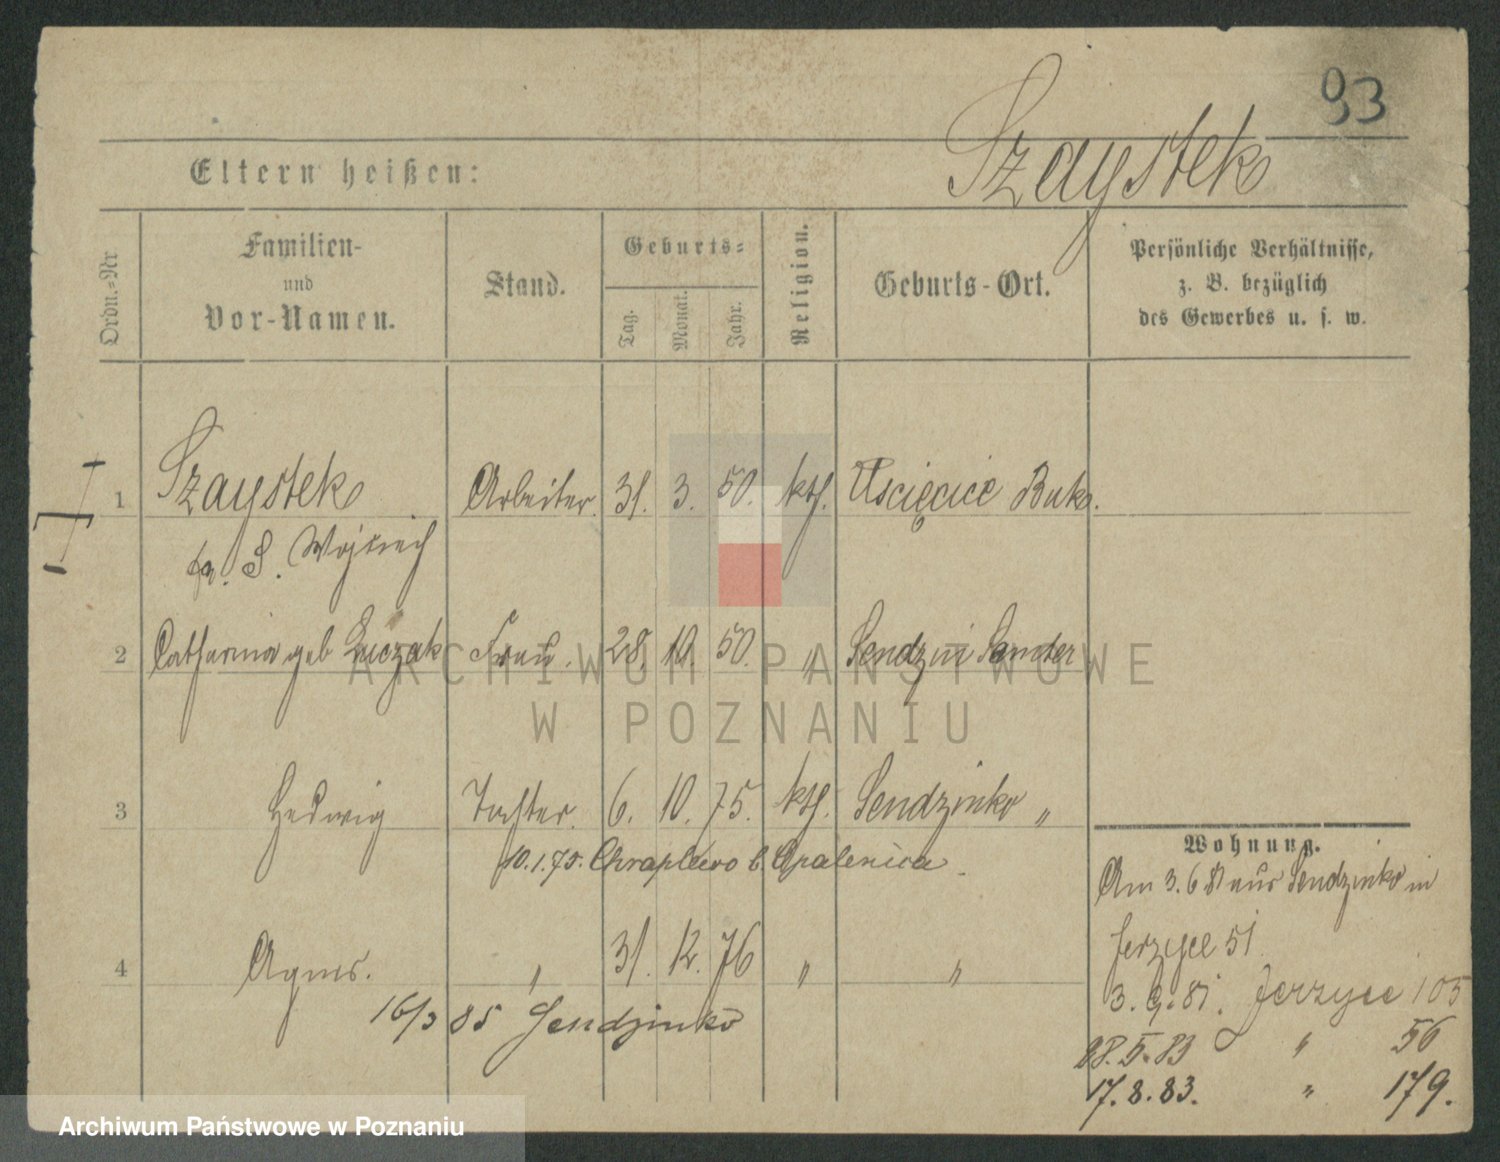 93
Szaystek
Eltern heißen:
Ordn.-Nr
Familien-
und
Vor-Namen.
Stand.
Geburts-
Tag.
Monat.
Jahr.
Religion.
Geburts-Ort.
Persönliche Verhältnisse,
z. B. bezüglich
des Gewerbes u. s. w.
1 Szaystek Arbeiter. 31. 3. 50. kth. Uścięcice Buk.
S. Wojciech
2 Catharina geb Łuczak Frau. 28. 10. 50. " Sendzin Samter
3 Hedwig Tochter. 6. 10. 75. kth. Sendzinko "
10.1.75. Chraplewo b. Opalenica.
4 Agnes. " 31. 12. 76 " "
16/3 85 Sendzinko
Wohnung.
Am 3.6 81 aus Sendzinko in
Jerzyce 51.
3.9.81. Jerzyce 105
28.5.83 " 56
17.8.83. " 179.
ARCHIWUM PAŃSTWOWE
W POZNANIU
Archiwum Państwowe w Poznaniu